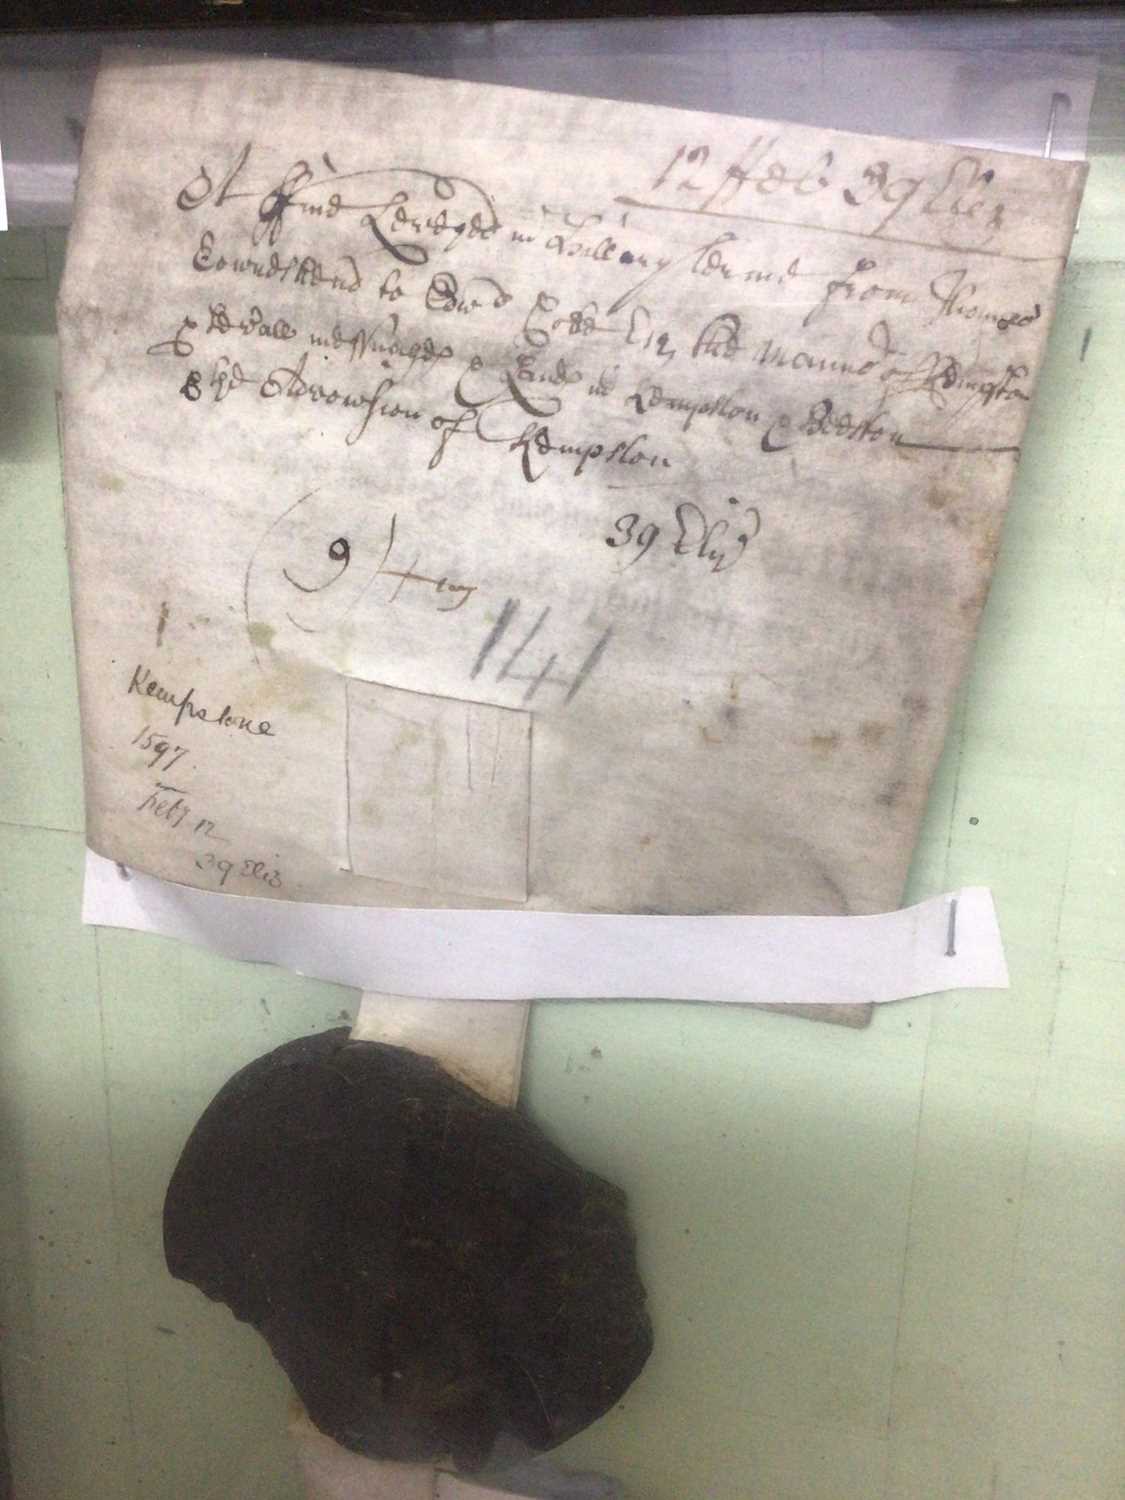 12 ffeb 39 Eliz
A ffine Levyed in Hillary terme from Thomas
Townshend to Edw: Cobbe Esq the Mannor of
& severall messuages & Lands in Kempston & Beeston
& the Advowsion of Kempston
39 Eliz
9
141
Kempstone
1597.
Feby 12
39 Eliz